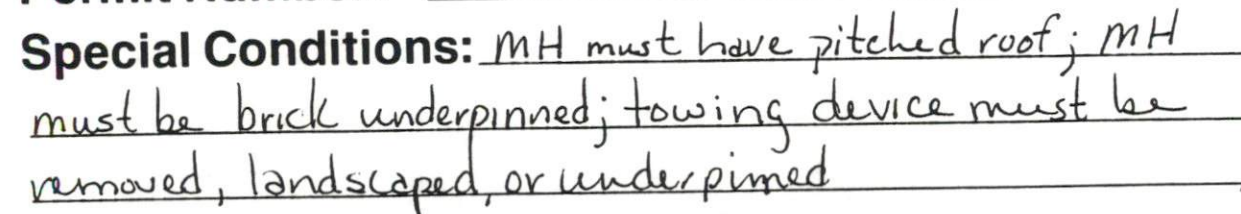 Special Conditions: MH must have pitched roof; MH
must be brick underpinned; towing device must be
removed, landscaped, or underpinned